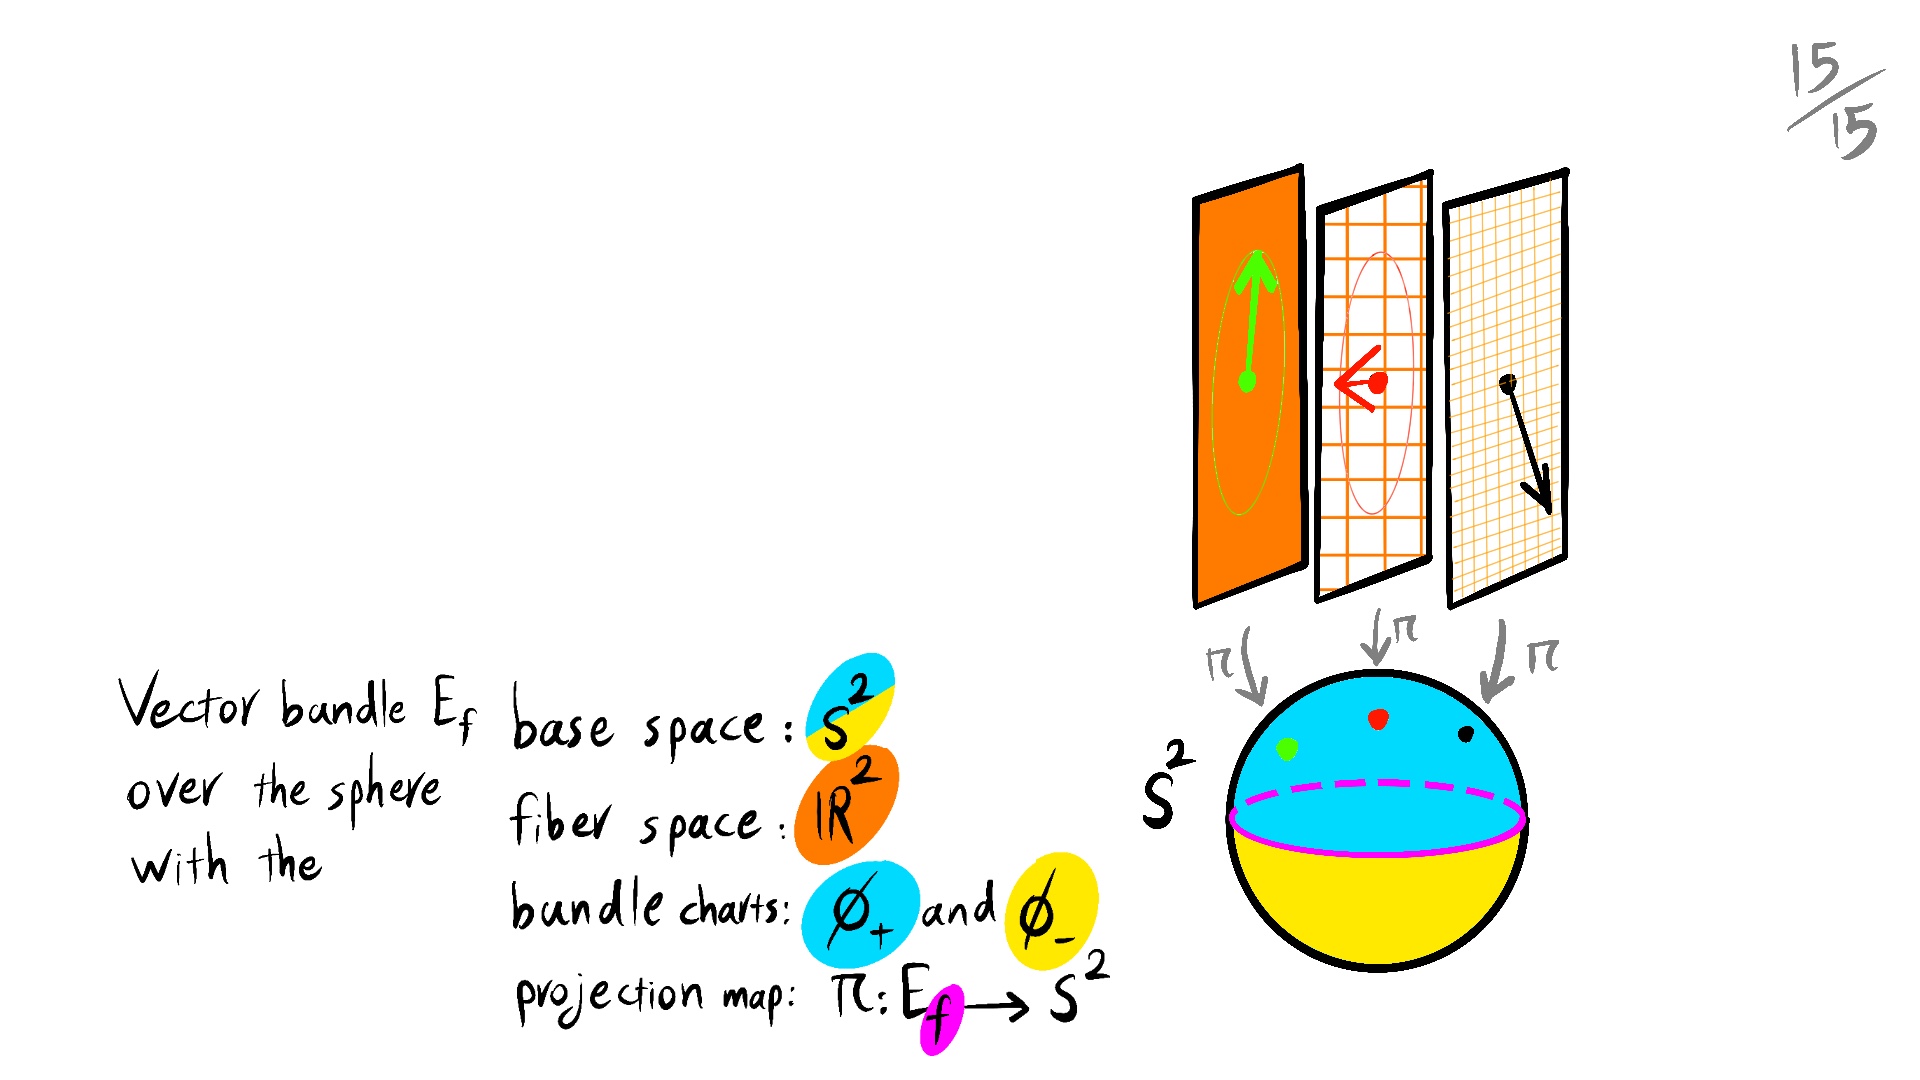 15/15
π
π
π
S²
Vector bundle E_f
over the sphere
with the
base space: S²
fiber space: ℝ²
bundle charts: ϕ₊ and ϕ₋
projection map: π: E_f → S²